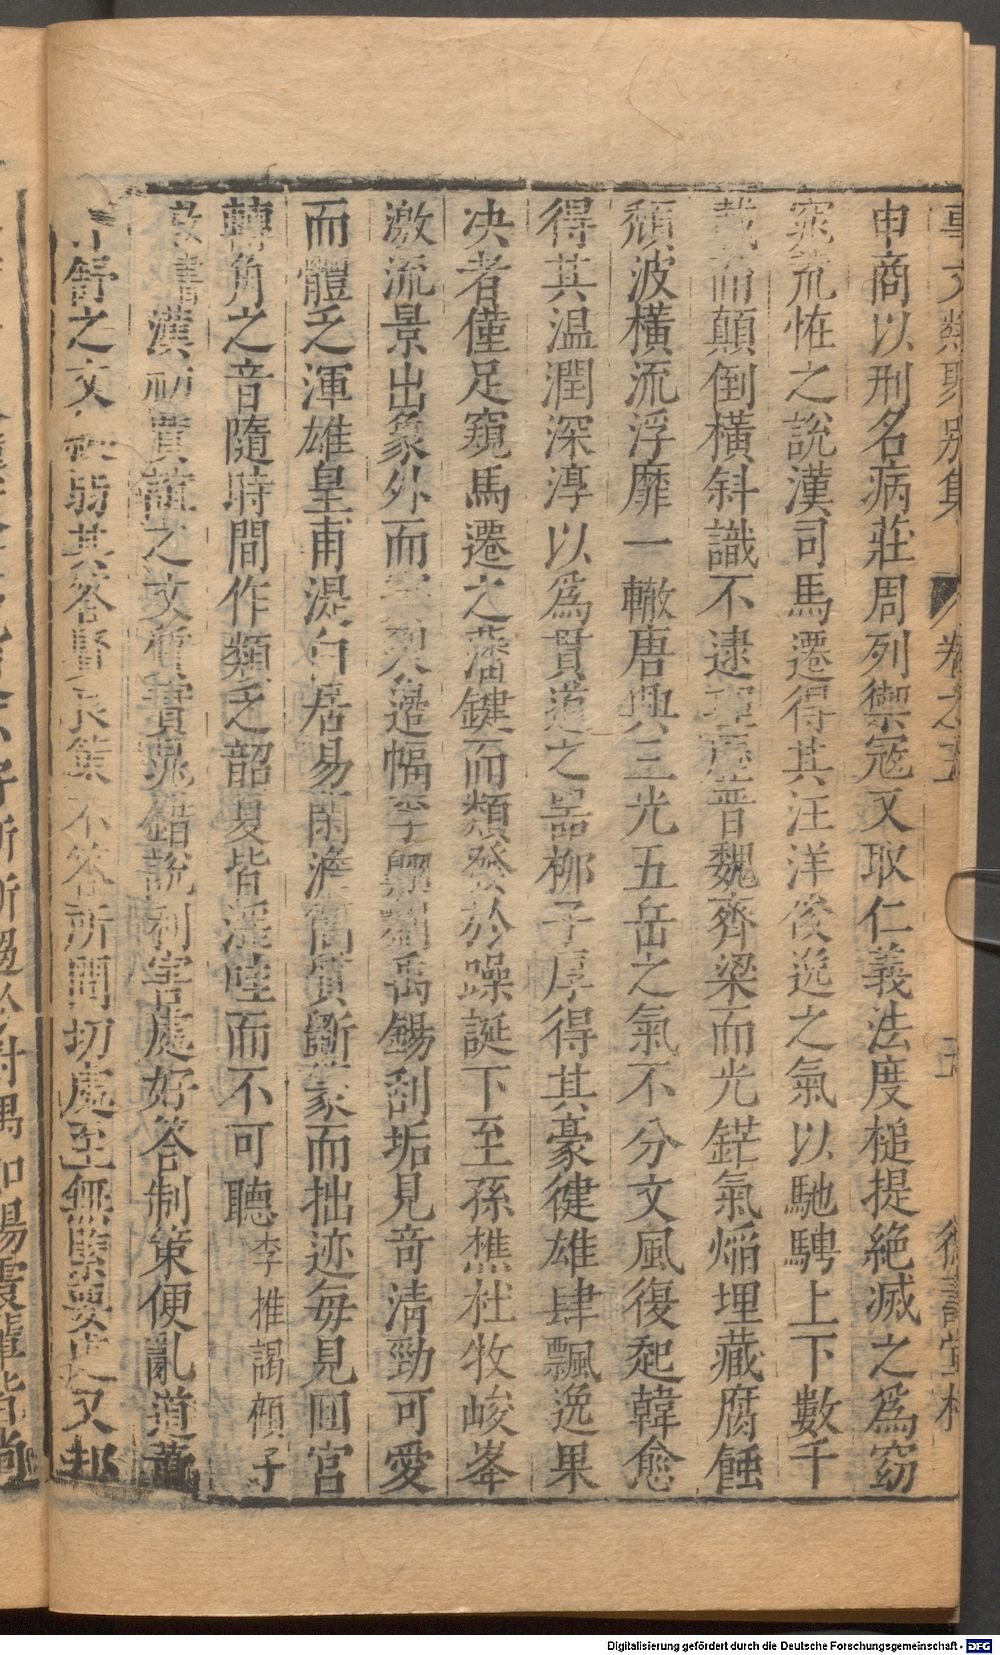 事文類聚別集 卷之五 五 德壽堂梓
申商以刑名病莊周列禦冦又取仁義法度槌提絶滅之爲窈
窕荒恠之說漢司馬遷得其汪洋俊逸之氣以馳騁上下數千
載而顛倒橫斜識不逮理歷晉魏齊梁而光鋩氣熖埋藏腐蝕
頽波橫流浮靡一轍唐興三光五岳之氣不分文風復起韓愈
得其温潤深淳以爲貫道之噐柳子厚得其豪健雄肆飄逸果
决者僅足窺馬遷之藩鍵而類發於躁誕下至孫樵杜牧峻峯
激流景出象外而裂邊幅李翺劉禹錫刮垢見奇清勁可愛
而體乏渾雄皇甫湜白居易閑澹簡質斵󠄀而拙迹每見回宮
轉角之音隨時間作類乏韶夏皆淫哇而不可聽李推謁頋子
漢初賈誼之文質實晁錯說利害處好答制策便亂道董
舒之文弱其答賢良策不答所問切處至無緊要處又却
Digitalisierung gefördert durch die Deutsche Forschungsgemeinschaft - DFG